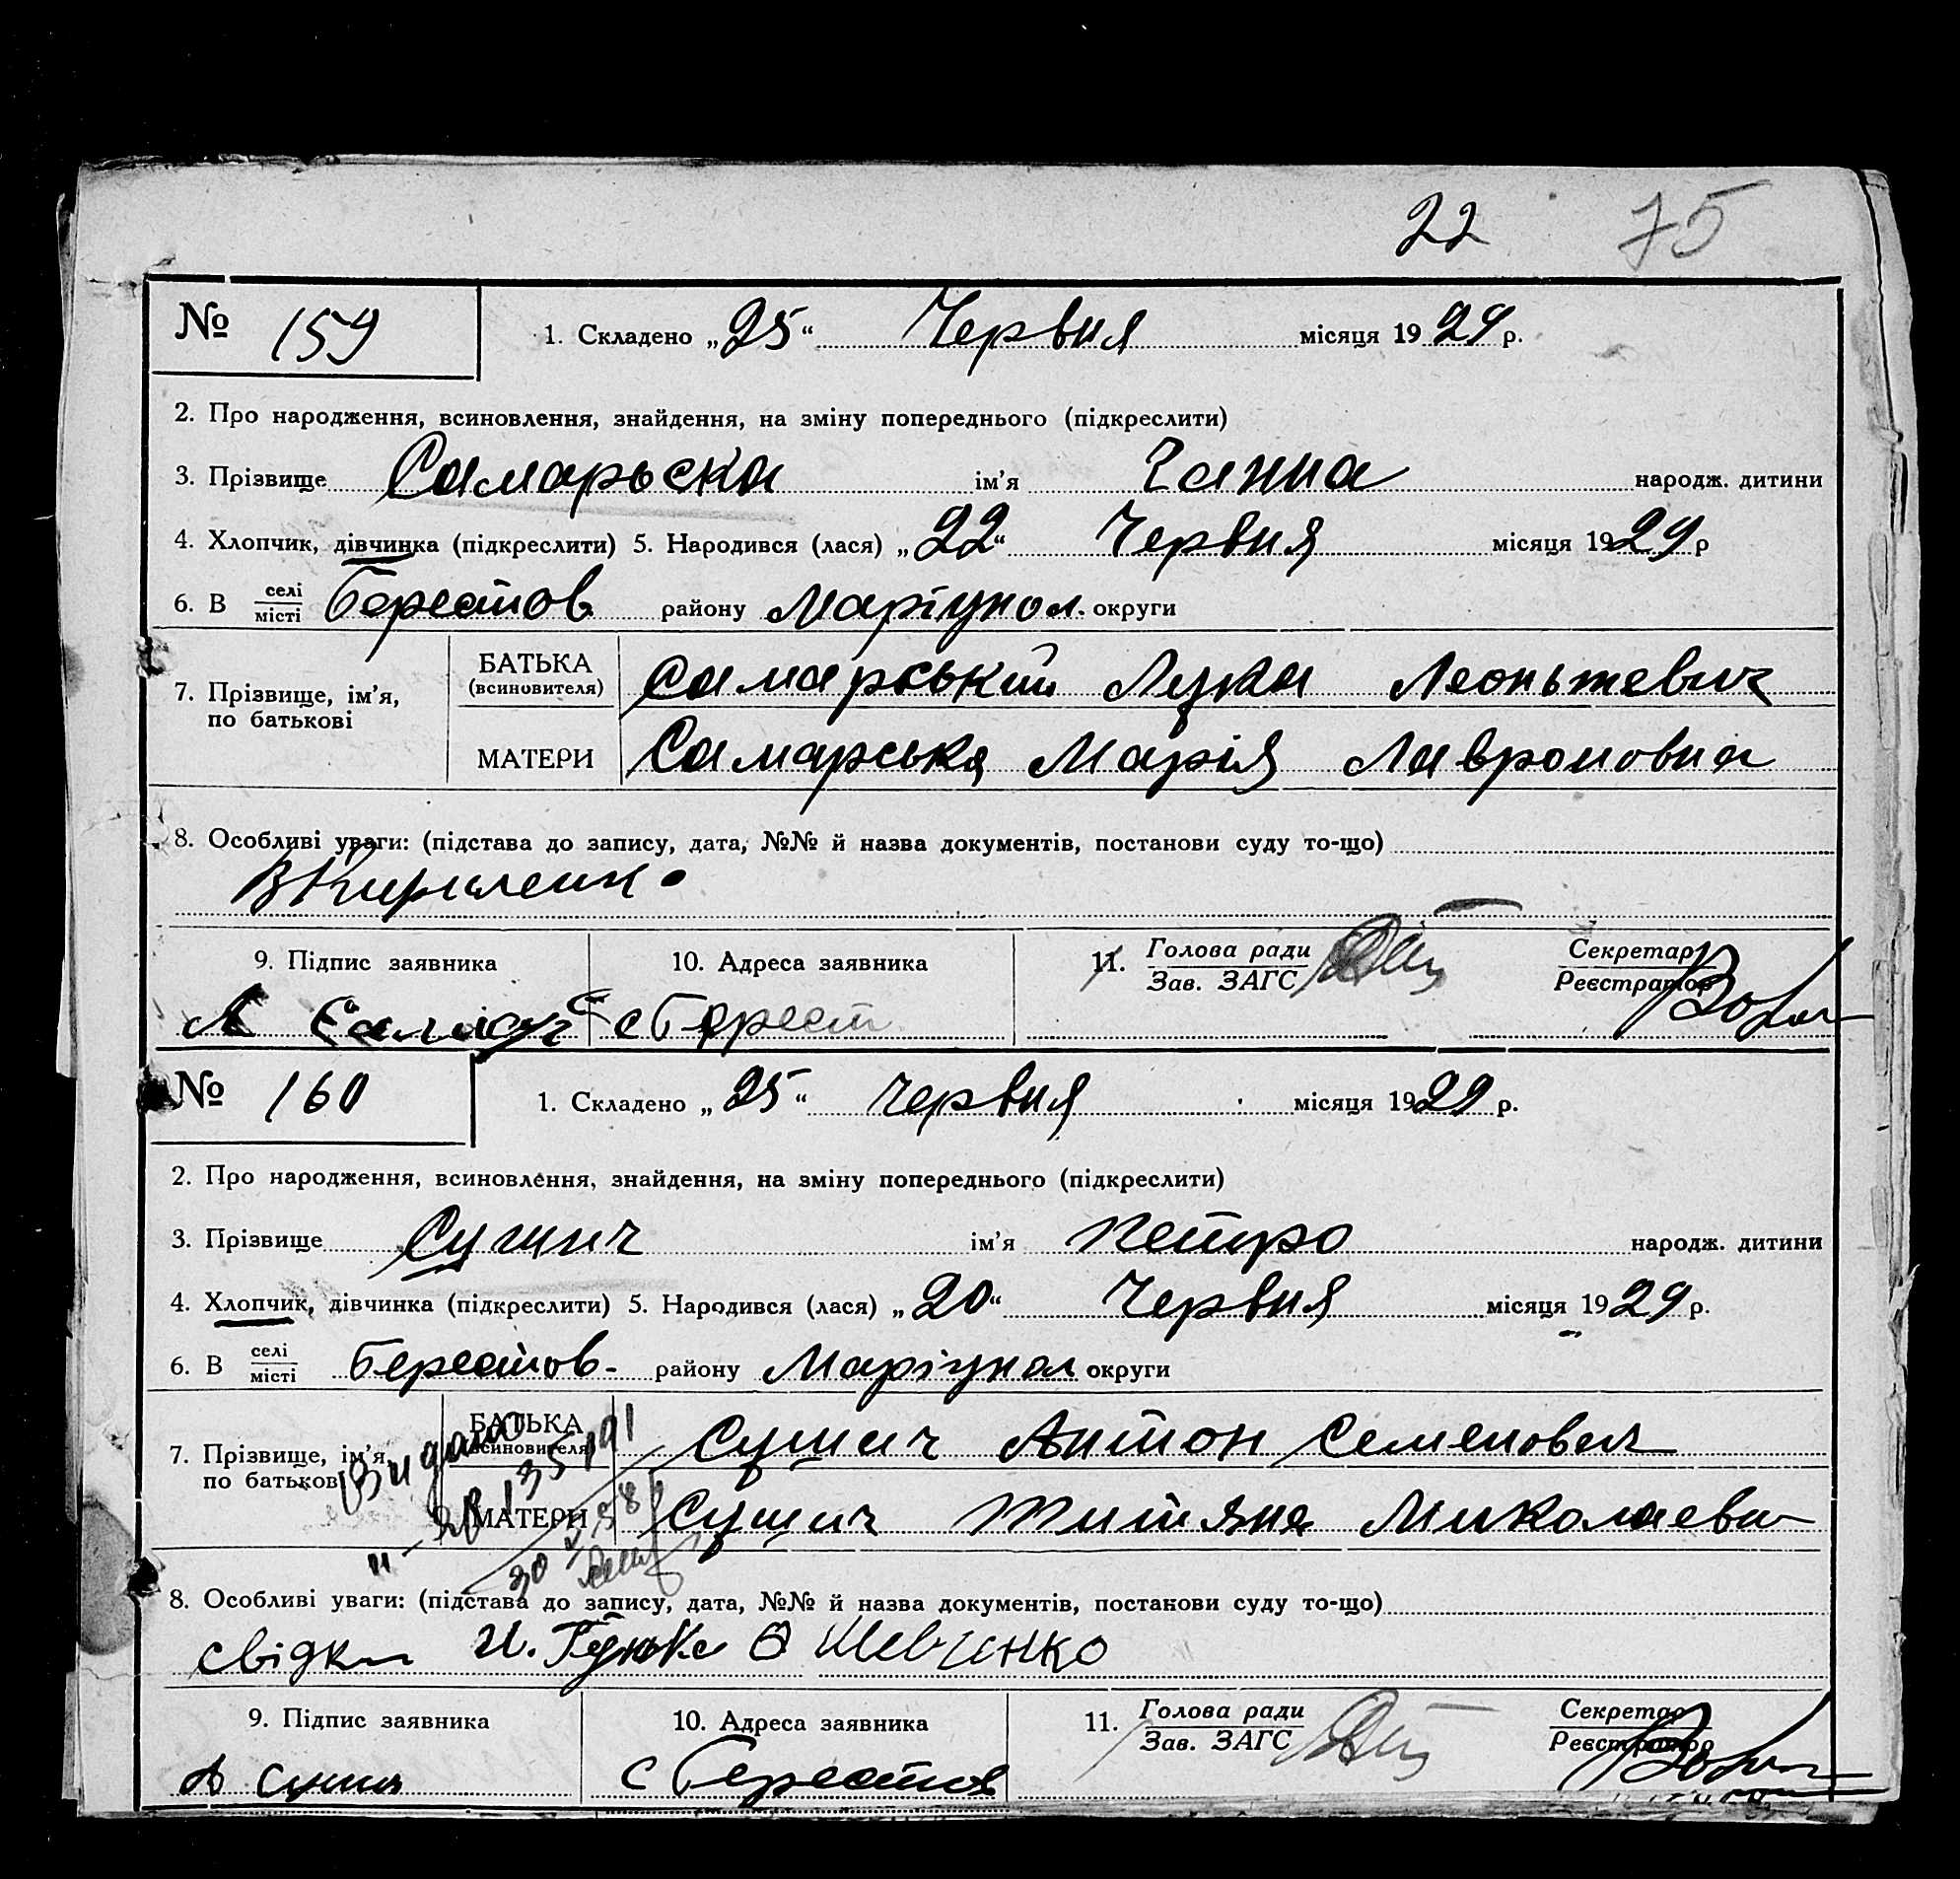 22 75
№ 159 1. Складено „25“ Червня місяця 1929 р.
2. Про народження, всиновлення, знайдення, на зміну попереднього (підкреслити)
3. Прізвище Самарьска ім’я Ганна народж. дитини
4. Хлопчик, дівчинка (підкреслити) 5. Народився (лася) „22“ Червня місяця 1929 р
6. В селі місті Берестов. району Маріупол. округи
7. Прізвище, ім’я, по батькові
БАТЬКА (всиновителя) Самарський Лука Леонтьевич
МАТЕРИ Самарська Марія Лавроновна
8. Особливі уваги: (підстава до запису, дата, №№ й назва документів, постанови суду то-що)
В Кириленко
9. Підпис заявника 10. Адреса заявника 11. Голова ради Зав. ЗАГС Секретар Реєстратор
с Берест
№ 160 1. Складено „25“ червня місяця 1929 р.
2. Про народження, всиновлення, знайдення, на зміну попереднього (підкреслити)
3. Прізвище Сушич ім’я Петро народж. дитини
4. Хлопчик, дівчинка (підкреслити) 5. Народився (лася) „20“ Червня місяця 1929 р.
6. В селі місті Берестов- району Маріупол округи
7. Прізвище, ім’я, по батькові
БАТЬКА (всиновителя) Сушич Антон Семенович
МАТЕРИ Сушич Титяна Миколаевн
Видано
8. Особливі уваги: (підстава до запису, дата, №№ й назва документів, постанови суду то-що)
свідки И. О Шевченко
9. Підпис заявника 10. Адреса заявника 11. Голова ради Зав. ЗАГС Секретар Реєстратор
с Берестов